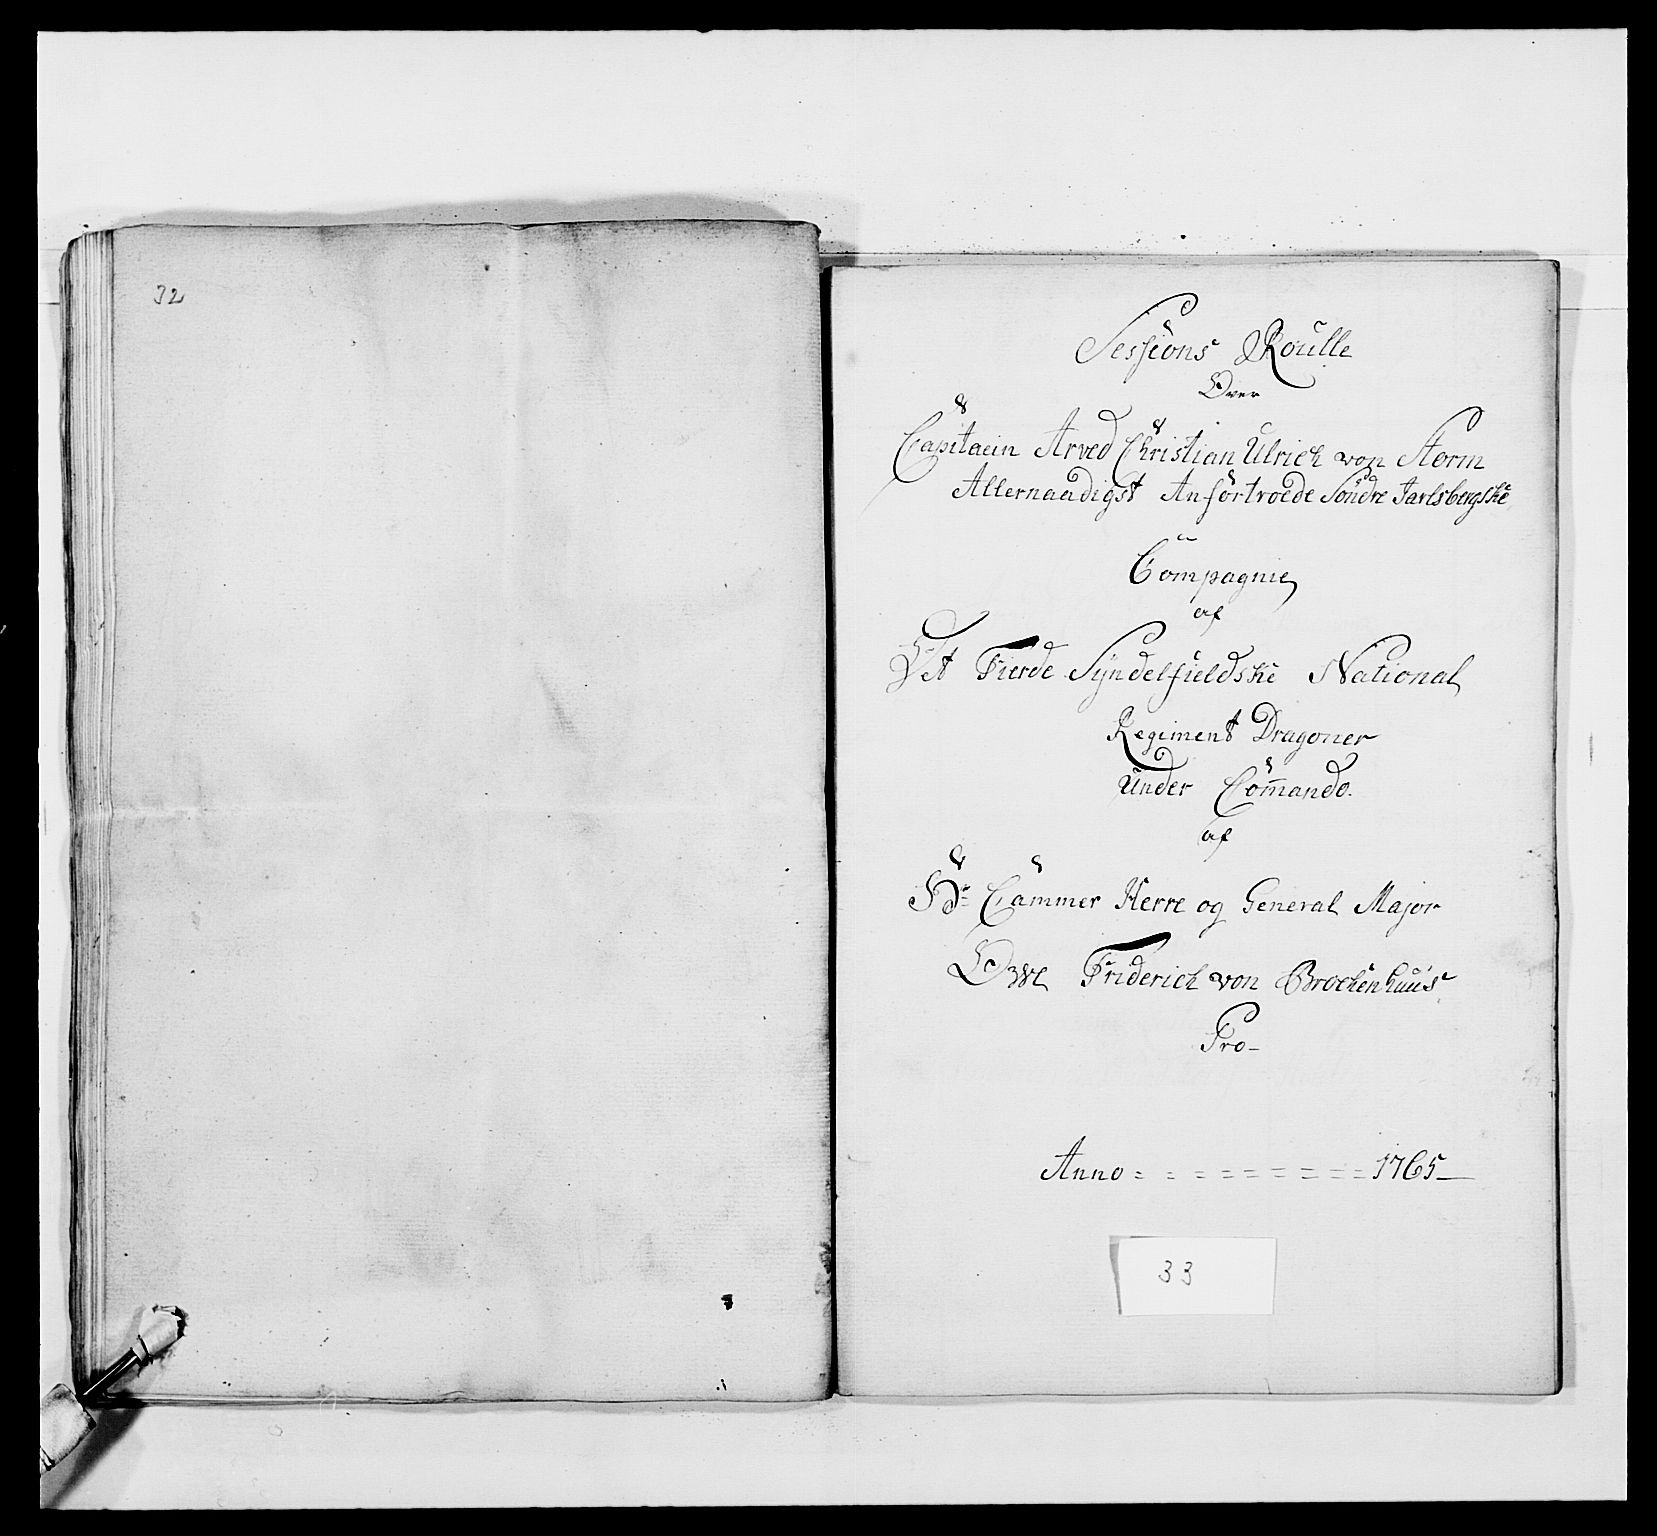 32
Sessions Roulle
Over
Capitaein Arved Christian Ulrich von Storm
Allernaadigst Anfortroede Söndre Jarlsbergske
Compagnie
af
Det Fierde Syndelfieldske National
Regiment Dragoner
Under Com̄ando.
af
Hr: Cammer Herre og General Major
Owe Friderich von Brockenhuus
Pro-
Anno = = = = = = = = = 1765_
33